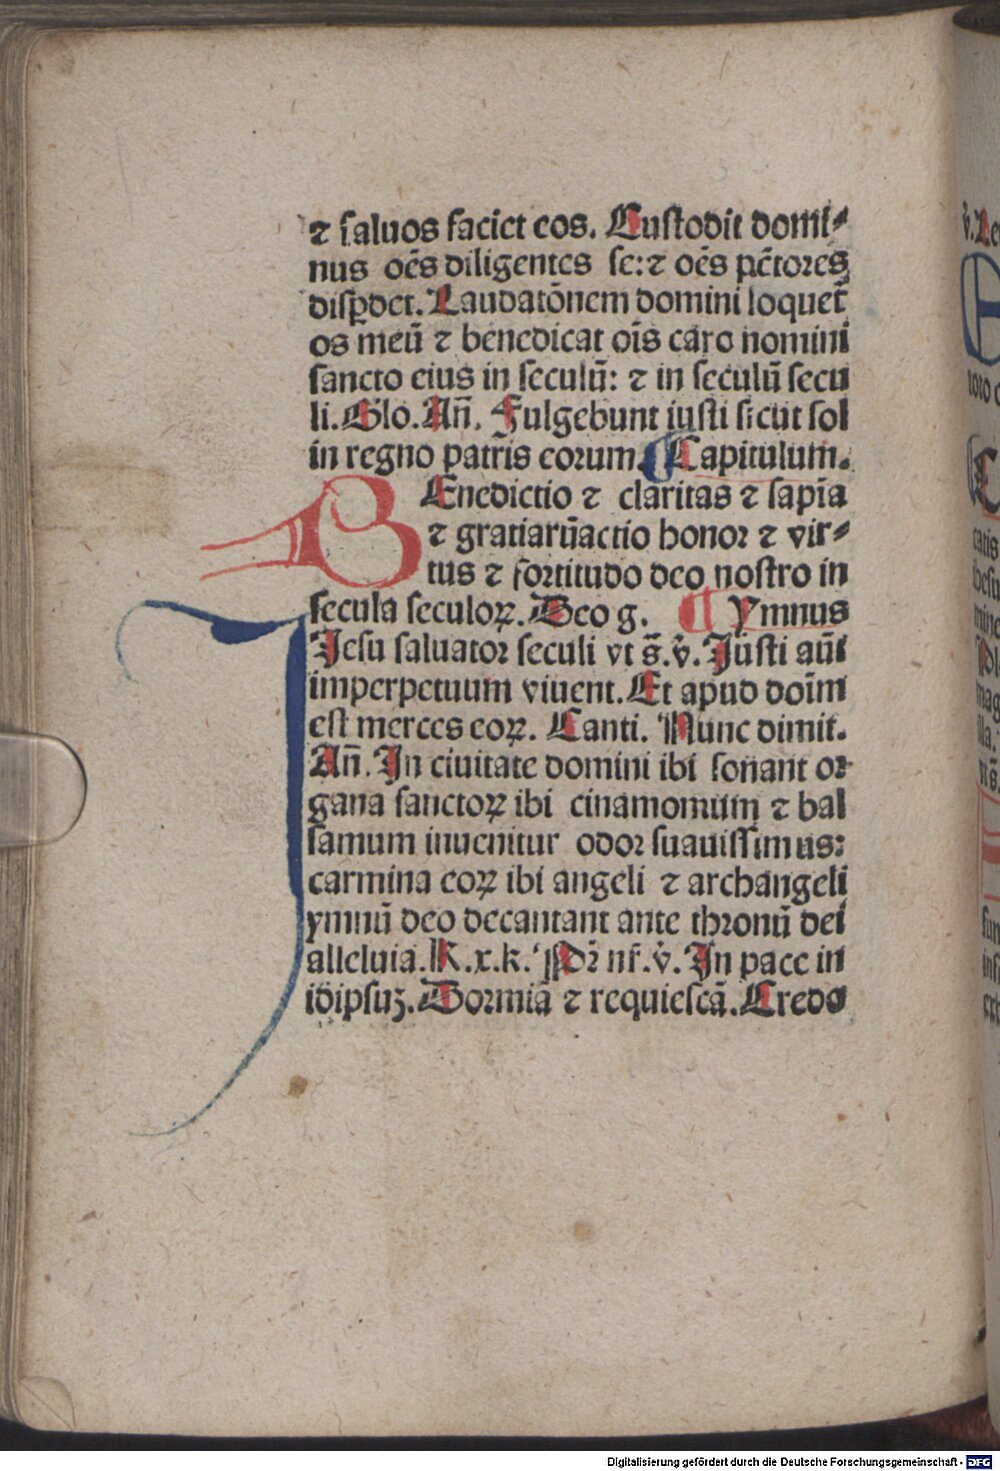 ⁊ saluos faciet eos. Custodit domi⸗
nus oēs diligentes se: ⁊ oēs pctōres
disꝑdet. Laudatōnem domini loquet̄
os meū ⁊ benedicat oīs caro nomini
sancto eius in seculū: ⁊ in seculū secu
li. Glo. Añ. Fulgebunt iusti sicut sol
in regno patris eorum. ¶ Capitulum.
BEnedictio ⁊ claritas ⁊ sapīa
⁊ gratiarūactio honor ⁊ vir⸗
tus ⁊ fortitudo deo nostro in
secula seculoꝝ. Deo g. ¶ Ymnus
Jesu saluator seculi vt s̄. v̄. Justi aūt
imperpetuum viuent. Et apud doīm
est merces eoꝝ. Canti. Nunc dimit.
Añ. In ciuitate domini ibi sonant or
gana sanctoꝝ ibi cinamomum ⁊ bal
samum inuenitur odor suauissimus:
carmina eoꝝ ibi angeli ⁊ archangeli
ymnū deo decantant ante thronū dei
alleluia. K. x. k. Pr̄ nr̄. v̄. In pace in
idipsuꝫ. Dormiā ⁊ requiescā. Credo
Digitalisierung gefördert durch die Deutsche Forschungsgemeinschaft - DFG